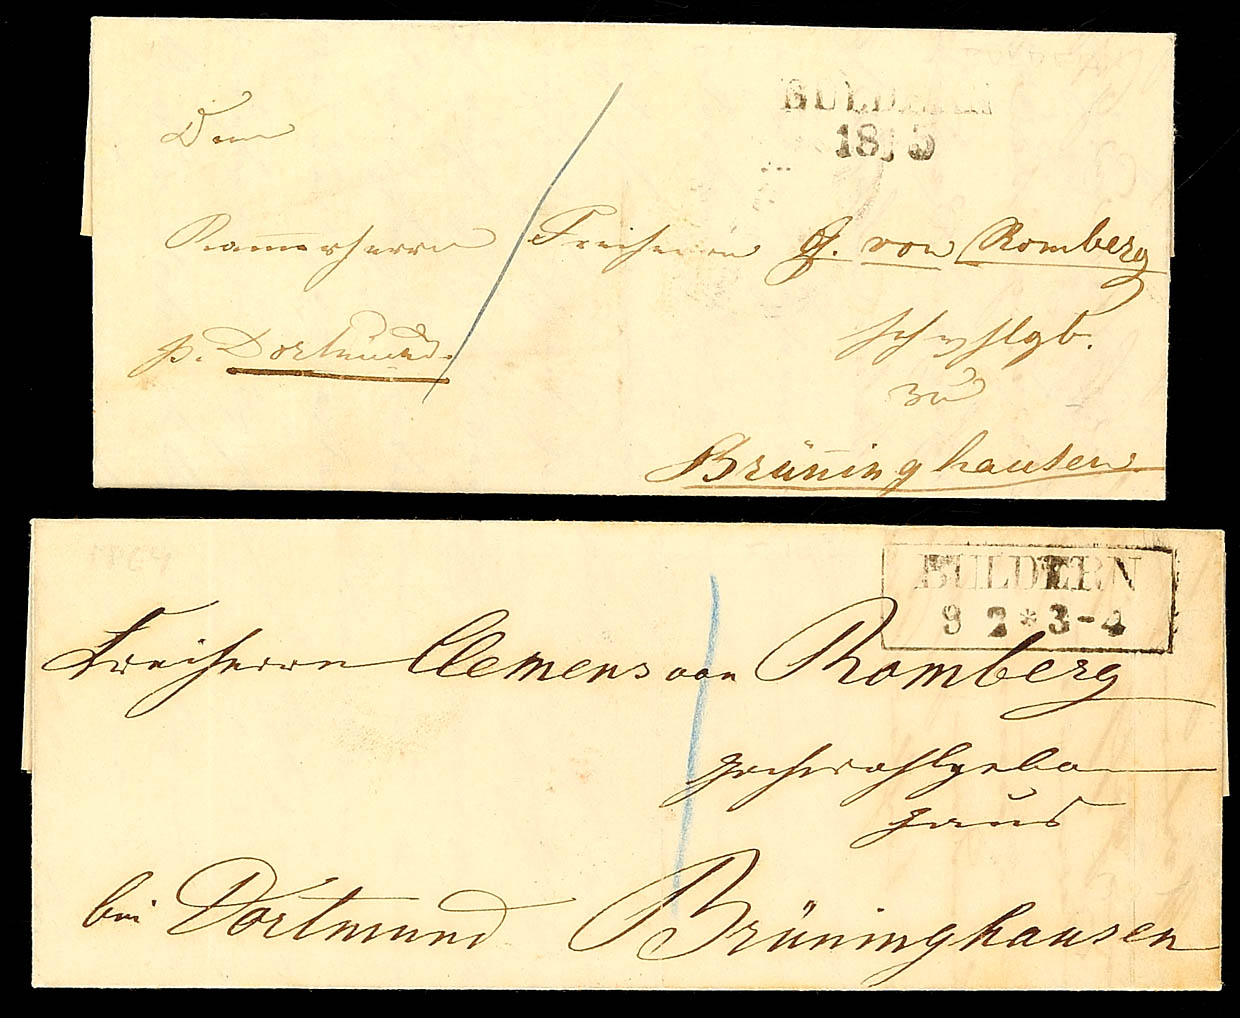 BULDERN
18/5
Dem
Kammerherrn Freiherrn G. von Romberg
p. Dortmund.
zu
Brüninghausen
1864
BULDERN
8 2 * 3-4
Freiherrn Clemens von Romberg
Hochwohlgeborn
Haus
bei Dortmund Brüninghausen